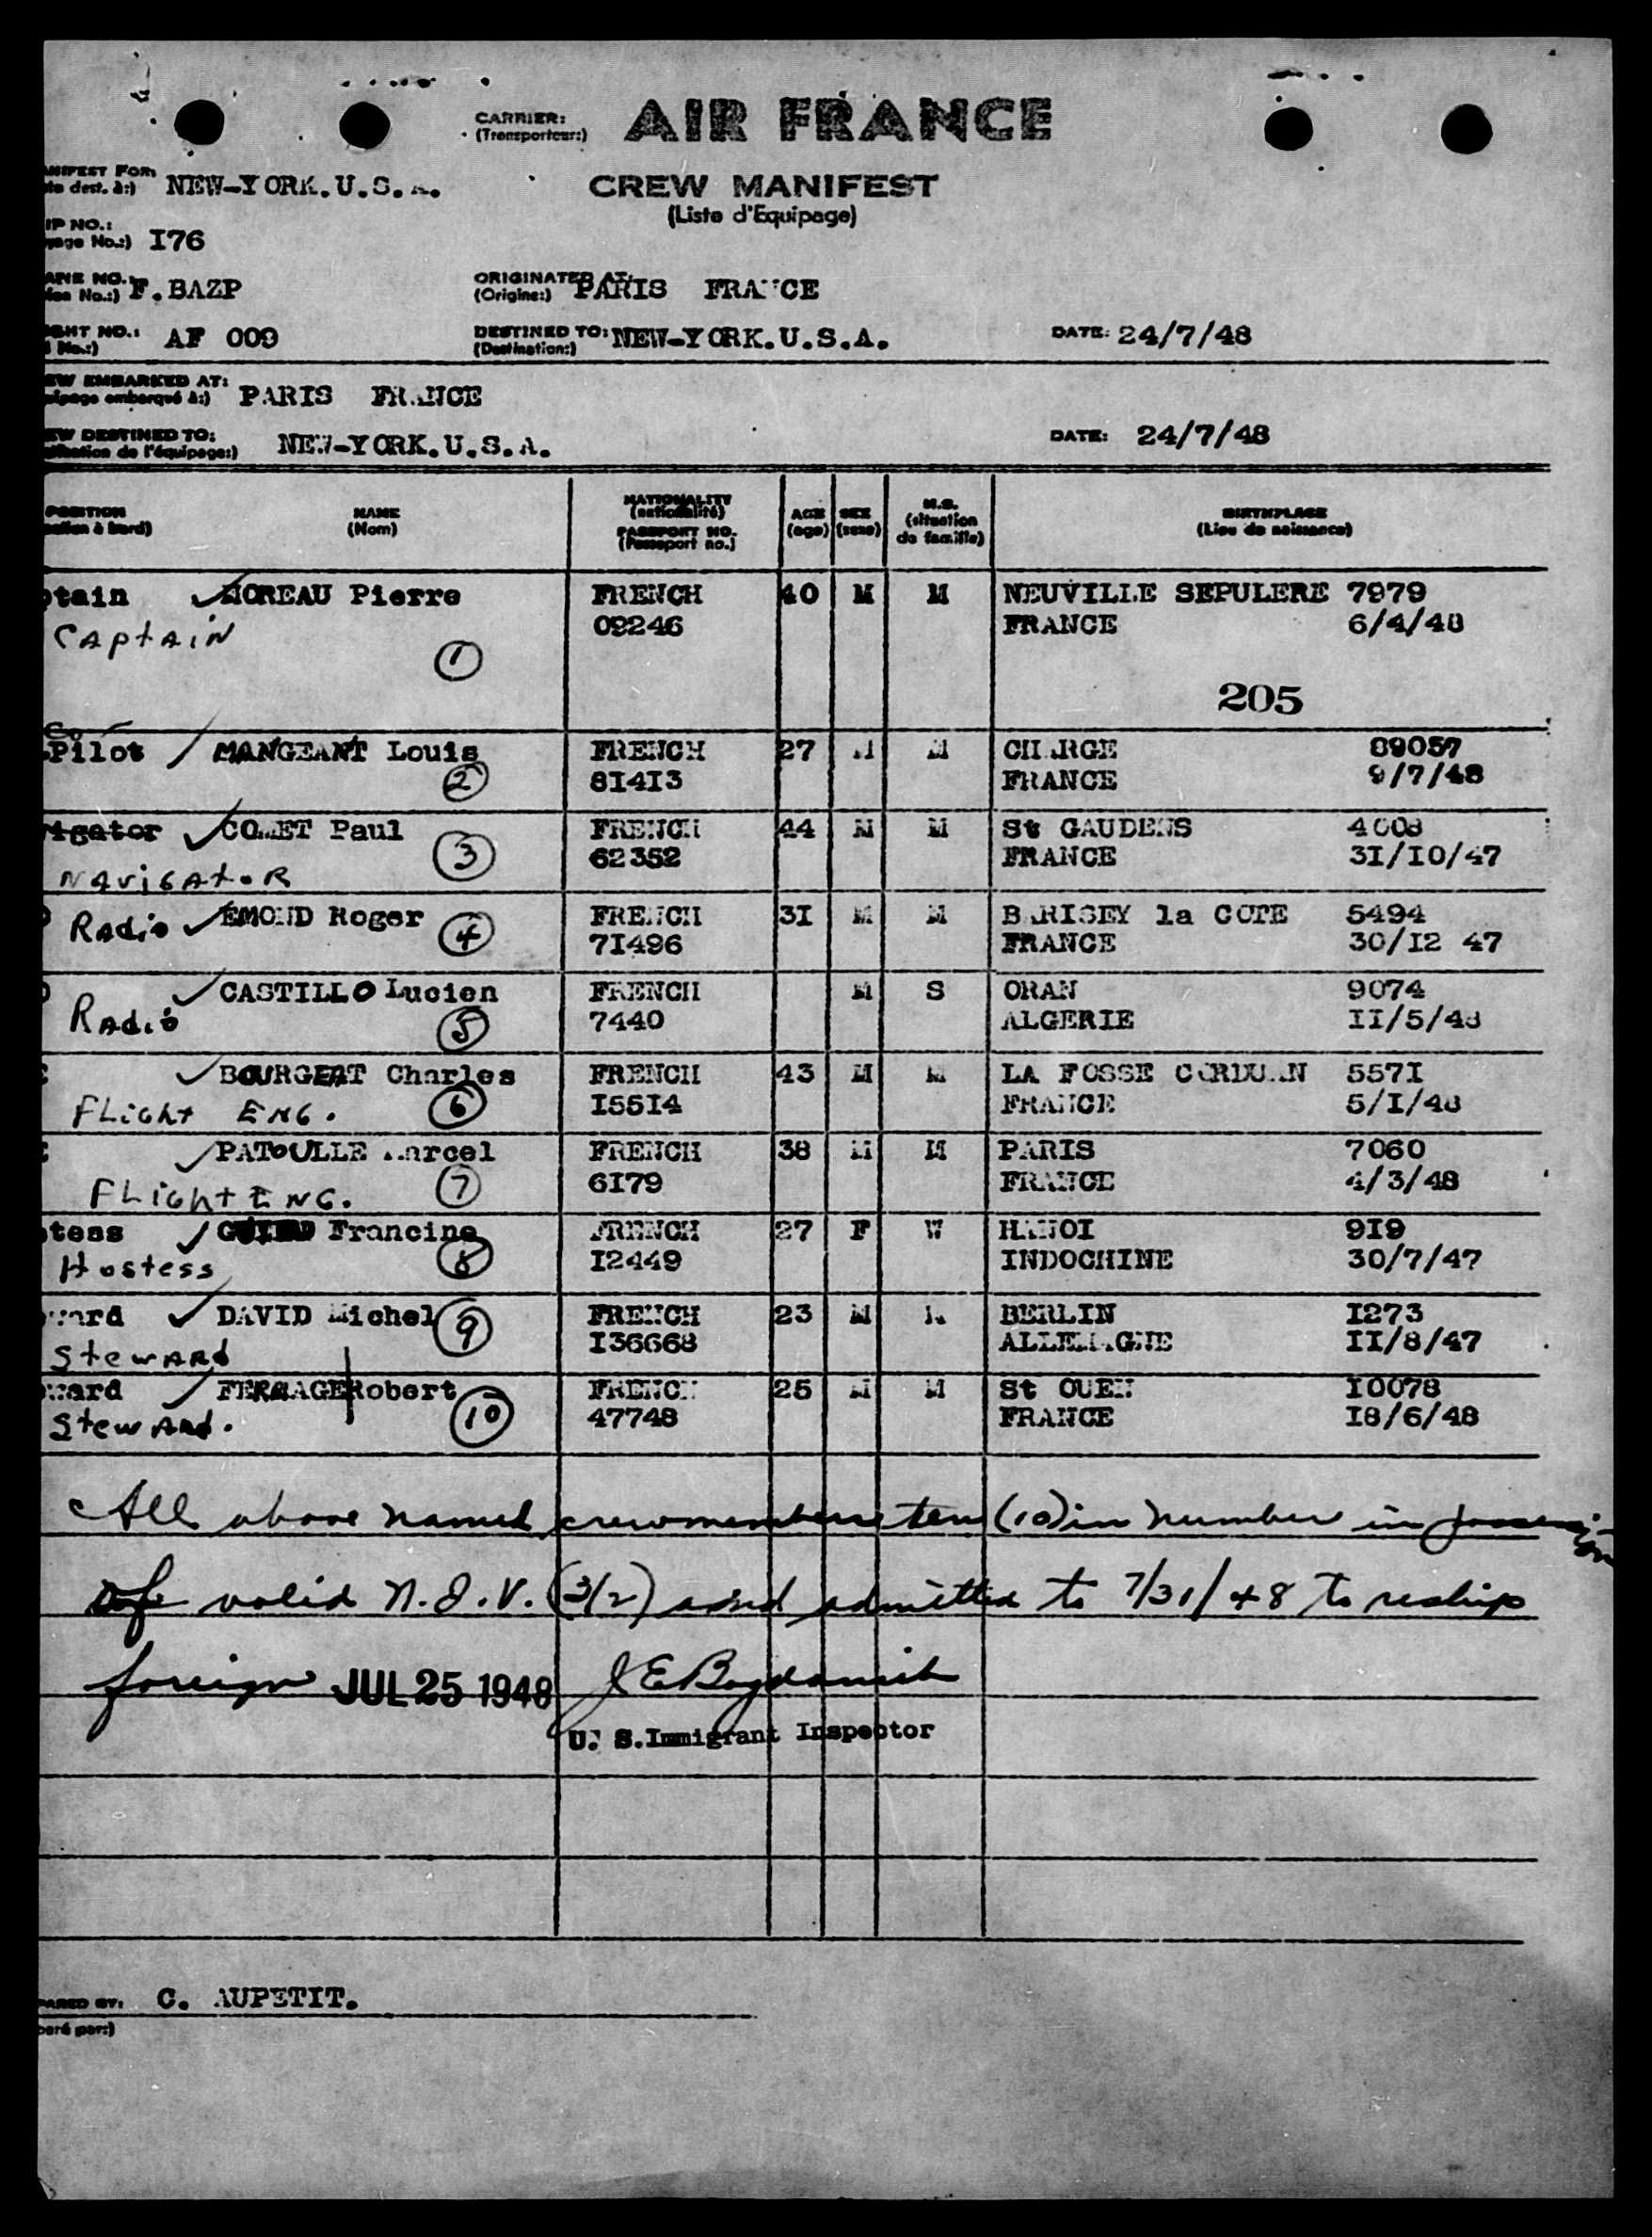 CARRIER: AIR FRANCE
(Transporteur:)
NIFEST FOR:
dest. à:) NEW-YORK.U.S.A.
CREW MANIFEST
(Liste d'Equipage)
IP NO.:
yage No.:) I76
ANE NO.:
ion No.:) F.BAZP
ORIGINATED AT:
(Origine:) PARIS FRANCE
GHT NO.: AF 009
No.:)
DESTINED TO: NEW-YORK.U.S.A.
(Destination:)
DATE: 24/7/48
EW EMBARKED AT:
uipage embarqué à:) PARIS FRANCE
EW DESTINED TO:
ination de l'équipage:) NEW-YORK.U.S.A.
DATE: 24/7/48
POSITION NAME NATIONALITY AGE SEX M.S. BIRTHPLACE
à bord) (Nom) (nationalité) (age) (sexe) (situation de famille) (Lieu de naissance)
PASSPORT NO.
(Passeport no.)
tain MOREAU Pierre FRENCH 40 M M NEUVILLE SEPULERE 7979
CAptAiN 09246 FRANCE 6/4/48
1
205
Co
Pilot MANGEANT Louis FRENCH 27 M M CHARGE 89057
2 81413 FRANCE 9/7/48
vigator COMET Paul FRENCH 44 M M St GAUDENS 4008
3 62352 FRANCE 3I/I0/47
NAViGAtoR
Radio EMOND Roger FRENCH 3I M M BARISEY la COTE 5494
4 7I496 FRANCE 30/I2 47
CASTILLO Lucien FRENCH M S ORAN 9074
Radio 5 7440 ALGERIE II/5/48
BOURGEAT Charles FRENCH 43 M M LA FOSSE CORDUAN 557I
FLight ENG. 6 I55I4 FRANCE 5/I/48
PATOULLE Marcel FRENCH 38 M M PARIS 7060
FLight ENG. 7 6I79 FRANCE 4/3/48
tess Francine FRENCH 27 F W HANOI 9I9
Hostess 8 I2449 INDOCHINE 30/7/47
ward DAVID Michel FRENCH 23 M BERLIN I273
Steward 9 I36668 ALLEMAGNE II/8/47
ward FERMAGE Robert FRENCH 25 M M St OUEN I0078
Steward. 10 47748 FRANCE I8/6/48
All above named crewmembers ten (10) in number in possession
of valid N.I.V. (3/2) and admitted to 7/31/48 to reship
foreign JUL 25 1948 J E Bogdanich
U. S.Immigrant Inspector
PARED BY: C. AUPETIT.
paré par:)